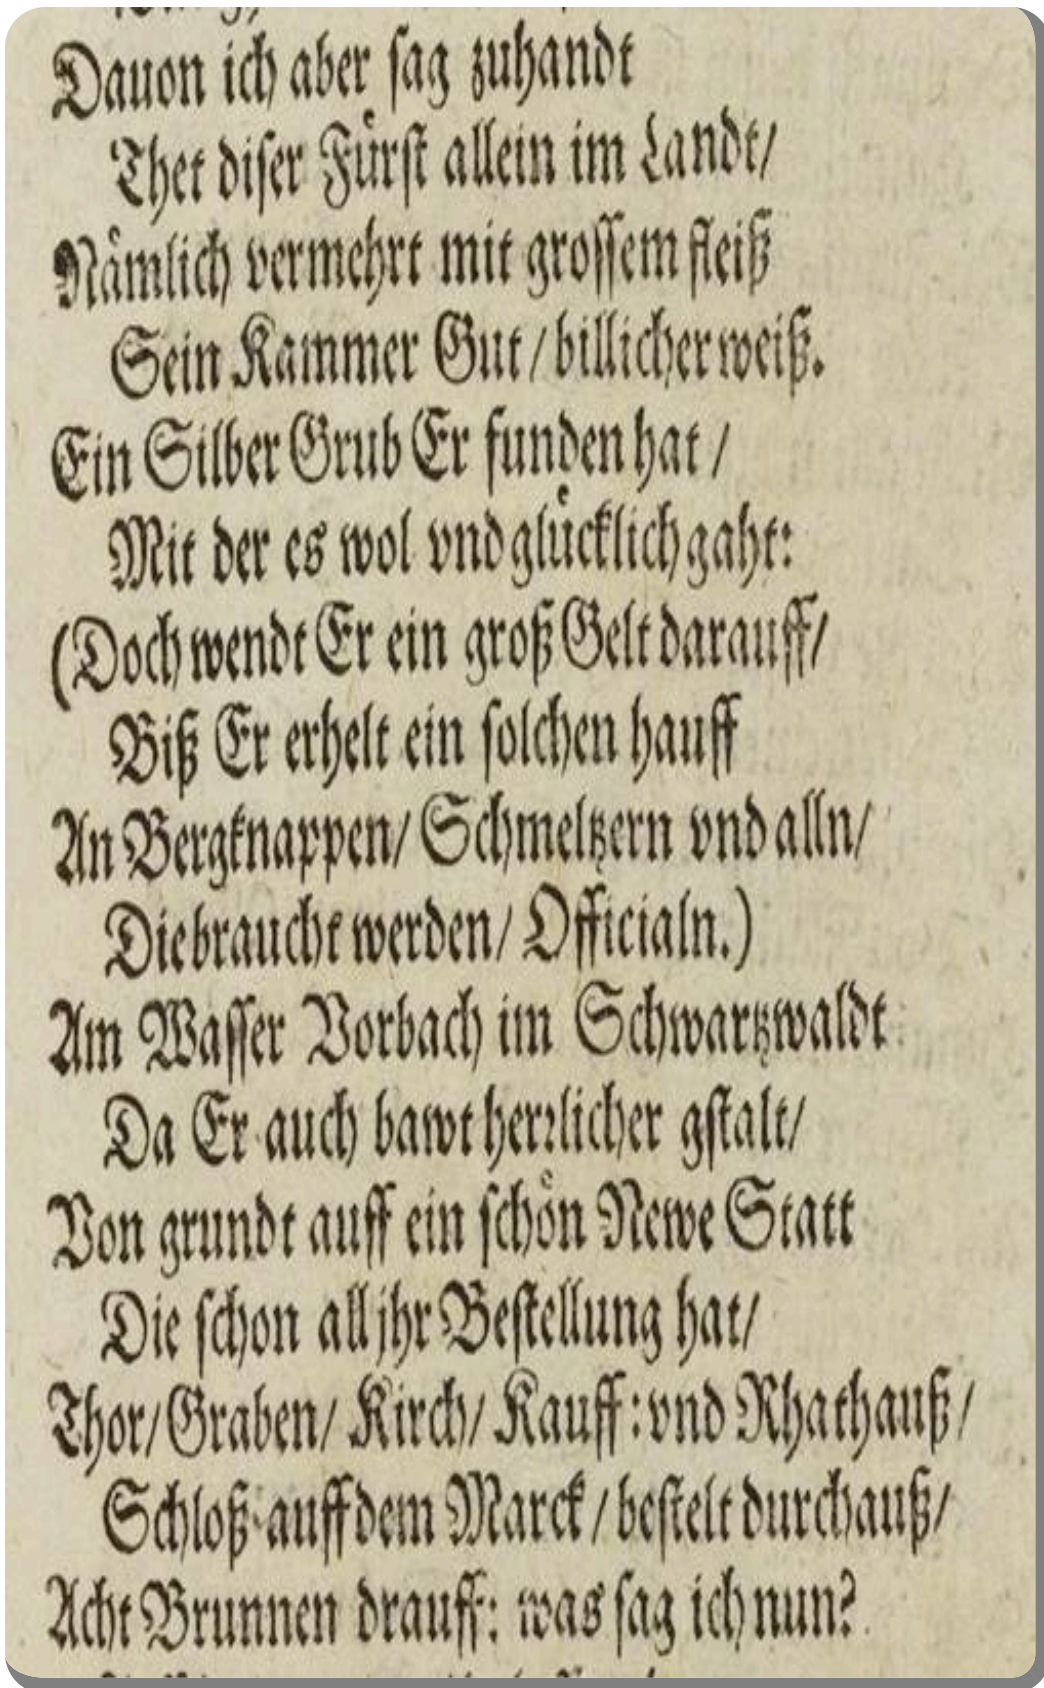 Dauon ich aber ſag zuhandt
Thet diſer Fuͤrſt allein im Landt/
Naͤmlich vermehrt mit groſſem fleiß
Sein Kammer Gut / billicher weiß.
Ein Silber Grub Er funden hat /
Mit der es wol vnd gluͤcklich gaht:
(Doch wendt Er ein groß Gelt darauff/
Biß Er erhelt ein ſolchen hauff
An Bergknappen/ Schmeltzern vnd alln/
Die braucht werden/ Officialn.)
Am Waſſer Vorbach im Schwartzwaldt
Da Er auch bawt herꝛlicher gſtalt/
Von grundt auff ein ſchoͤn Newe Statt
Die ſchon all jhr Beſtellung hat/
Thor/ Graben/ Kirch/ Kauff: vnd Rhathauß/
Schloß auff dem Marck / beſtelt durchauß/
Acht Brunnen drauff: was ſag ich nun?